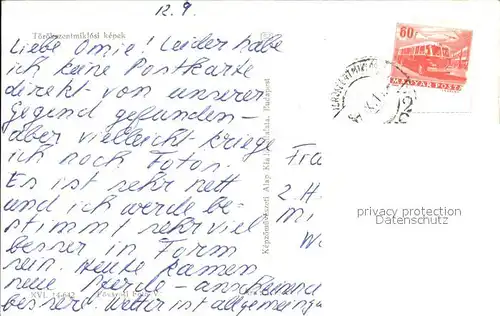 12.9.
Törökszentmiklósi képek
Liebe Omie! Leider habe
ich keine Postkarte
direkt von unserer
Gegend gefunden –
aber vielleicht kriege
ich noch Fotos.
Es ist sehr nett
und ich werde be-
stimmt sehr viel
besser in Form
sein. Heute kamen
neue Pferde – anscheinend
bessere. Wetter ist allgemein ga
XVI. 14-642
Képzőművészeti Alap Kiadóvállalata, Budapest
60f
MAGYAR POSTA
Fra
2 H
privacy protection
Datenschutz